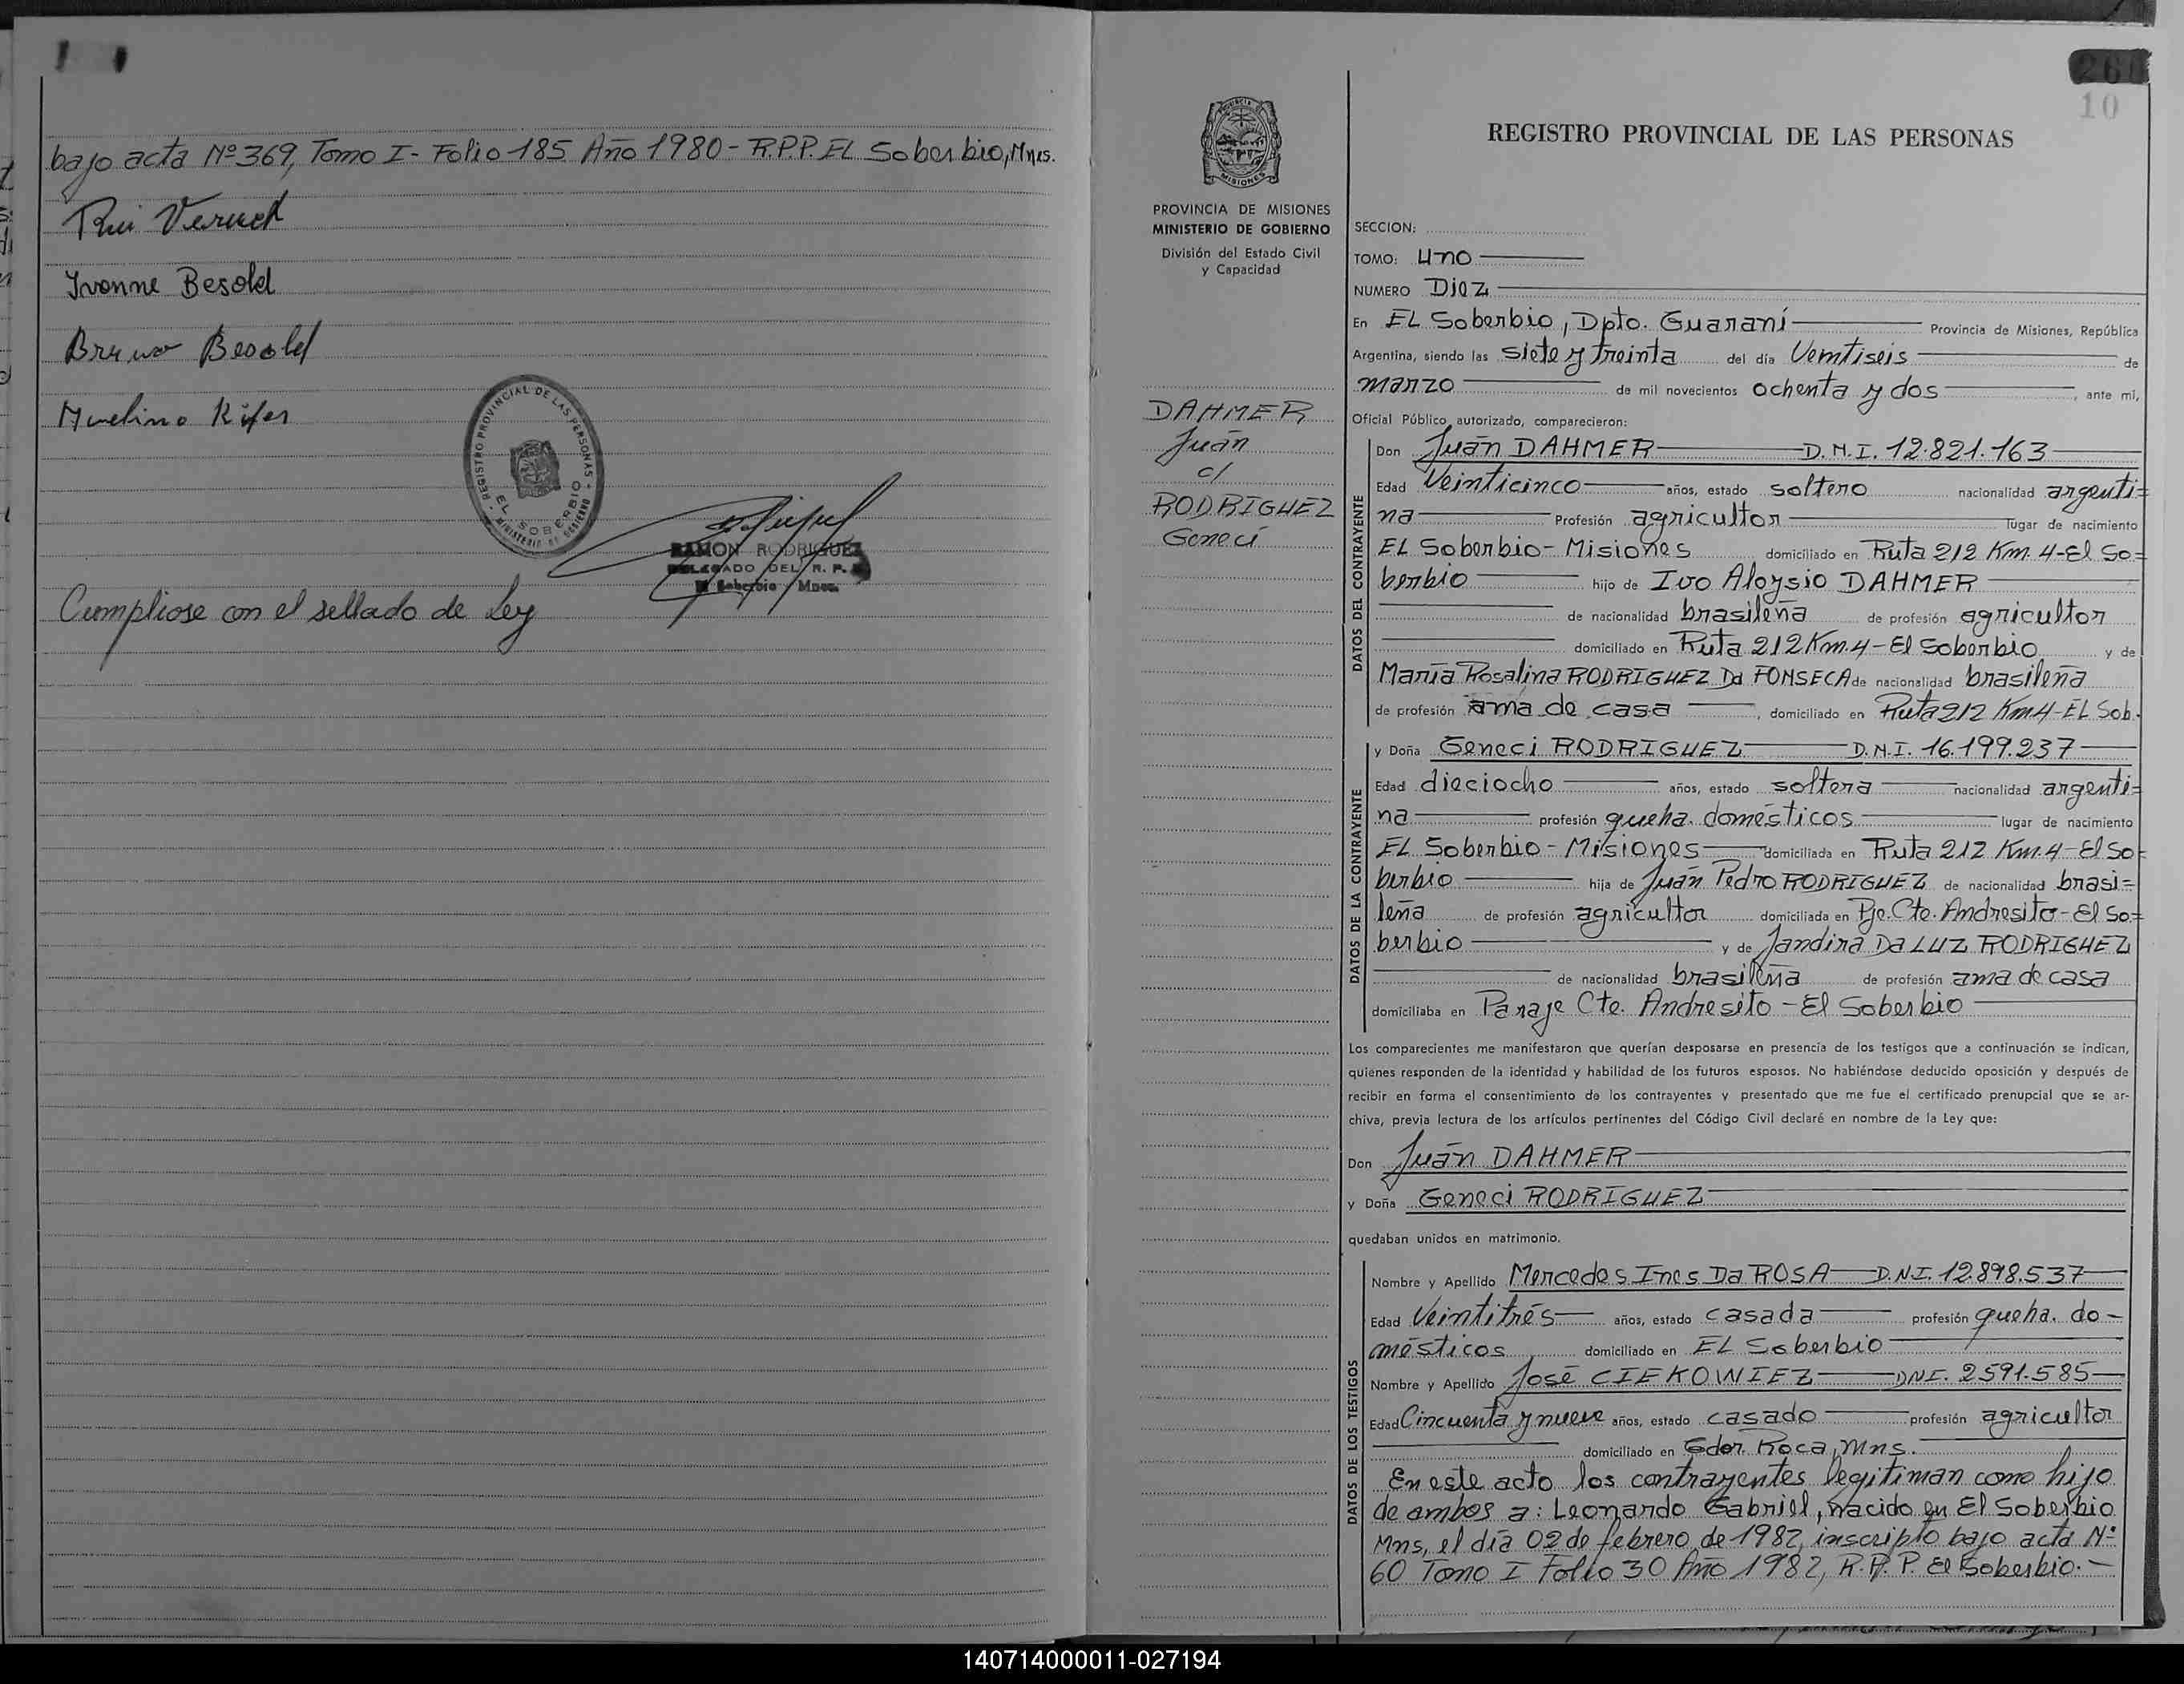 bajo acta Nº 369, Tomo I - Folio 185 Año 1980 - R.P.P. EL Soberbio, Mnes.
Ivonne Besold
Bruno Besold
REGISTRO PROVINCIAL DE LAS PERSONAS
EL SOBERBIO
MINISTERIO DE GOBIERNO
RAMON RODRIGUEZ
DELEGADO DEL R. P.
El Soberbio Mnes.
Cumpliose con el sellado de Ley
26
10
PROVINCIA DE MISIONES
MINISTERIO DE GOBIERNO
División del Estado Civil
y Capacidad
DAHMER
Juan
c/
RODRIGUEZ
Geneci
REGISTRO PROVINCIAL DE LAS PERSONAS
SECCION:
TOMO: uno
NUMERO Diez
En EL Soberbio, Dpto. Guaraní Provincia de Misiones, República
Argentina, siendo las siete y treinta del día Veintiseis de
marzo de mil novecientos ochenta y dos, ante mi,
Oficial Público, autorizado, comparecieron:
DATOS DEL CONTRAYENTE
Don Juan DAHMER D.N.I. 12.821.163
Edad Veinticinco años, estado soltero nacionalidad argenti=
na Profesión agricultor lugar de nacimiento
EL Soberbio - Misiones domiciliado en Ruta 212 Km. 4-El So=
berbio hijo de Ivo Aloysio DAHMER
de nacionalidad brasileña de profesión agricultor
domiciliado en Ruta 212 Km. 4 - El Soberbio y de
María Rosalina RODRIGUEZ Da FONSECA de nacionalidad brasileña
de profesión ama de casa, domiciliado en Ruta 212 Km 4-EL Sob.
DATOS DE LA CONTRAYENTE
y Doña Geneci RODRIGUEZ D.N.I. 16.199.237
Edad dieciocho años, estado soltera nacionalidad argenti=
na profesión queha. domésticos lugar de nacimiento
EL Soberbio - Misiones domiciliada en Ruta 212 Km. 4 - El So=
berbio hija de Juan Pedro RODRIGUEZ de nacionalidad brasi=
leña de profesión agricultor domiciliada en Pje. Cte. Andresito - El So=
berbio y de Jandira Da LUZ RODRIGUEZ
de nacionalidad brasileña de profesión ama de casa
domiciliaba en Paraje Cte. Andresito - El Soberbio
Los comparecientes me manifestaron que querían desposarse en presencia de los testigos que a continuación se indican,
quienes responden de la identidad y habilidad de los futuros esposos. No habiéndose deducido oposición y después de
recibir en forma el consentimiento de los contrayentes y presentado que me fue el certificado prenupcial que se ar-
chiva, previa lectura de los artículos pertinentes del Código Civil declaré en nombre de la Ley que:
Don Juan DAHMER
y Doña Geneci RODRIGUEZ
quedaban unidos en matrimonio.
DATOS DE LOS TESTIGOS
Nombre y Apellido Mercedes Ines Da ROSA D.N.I. 12.898.537
Edad Veintitrés años, estado casada profesión queha. do-
mésticos domiciliado en EL Soberbio
Nombre y Apellido José CIEKOWIEZ DNI. 2591.585
Edad Cincuenta y nueve años, estado casado profesión agricultor
domiciliado en Gdor. Roca, Mns.
En este acto los contrayentes legitiman como hijo
de ambos a: Leonardo Gabriel, nacido en El Soberbio
Mns, el día 02 de febrero de 1982, inscripto bajo acta Nº
60 Tomo I Folio 30 Año 1982, R.P.P. El Soberbio.-
140714000011-027194